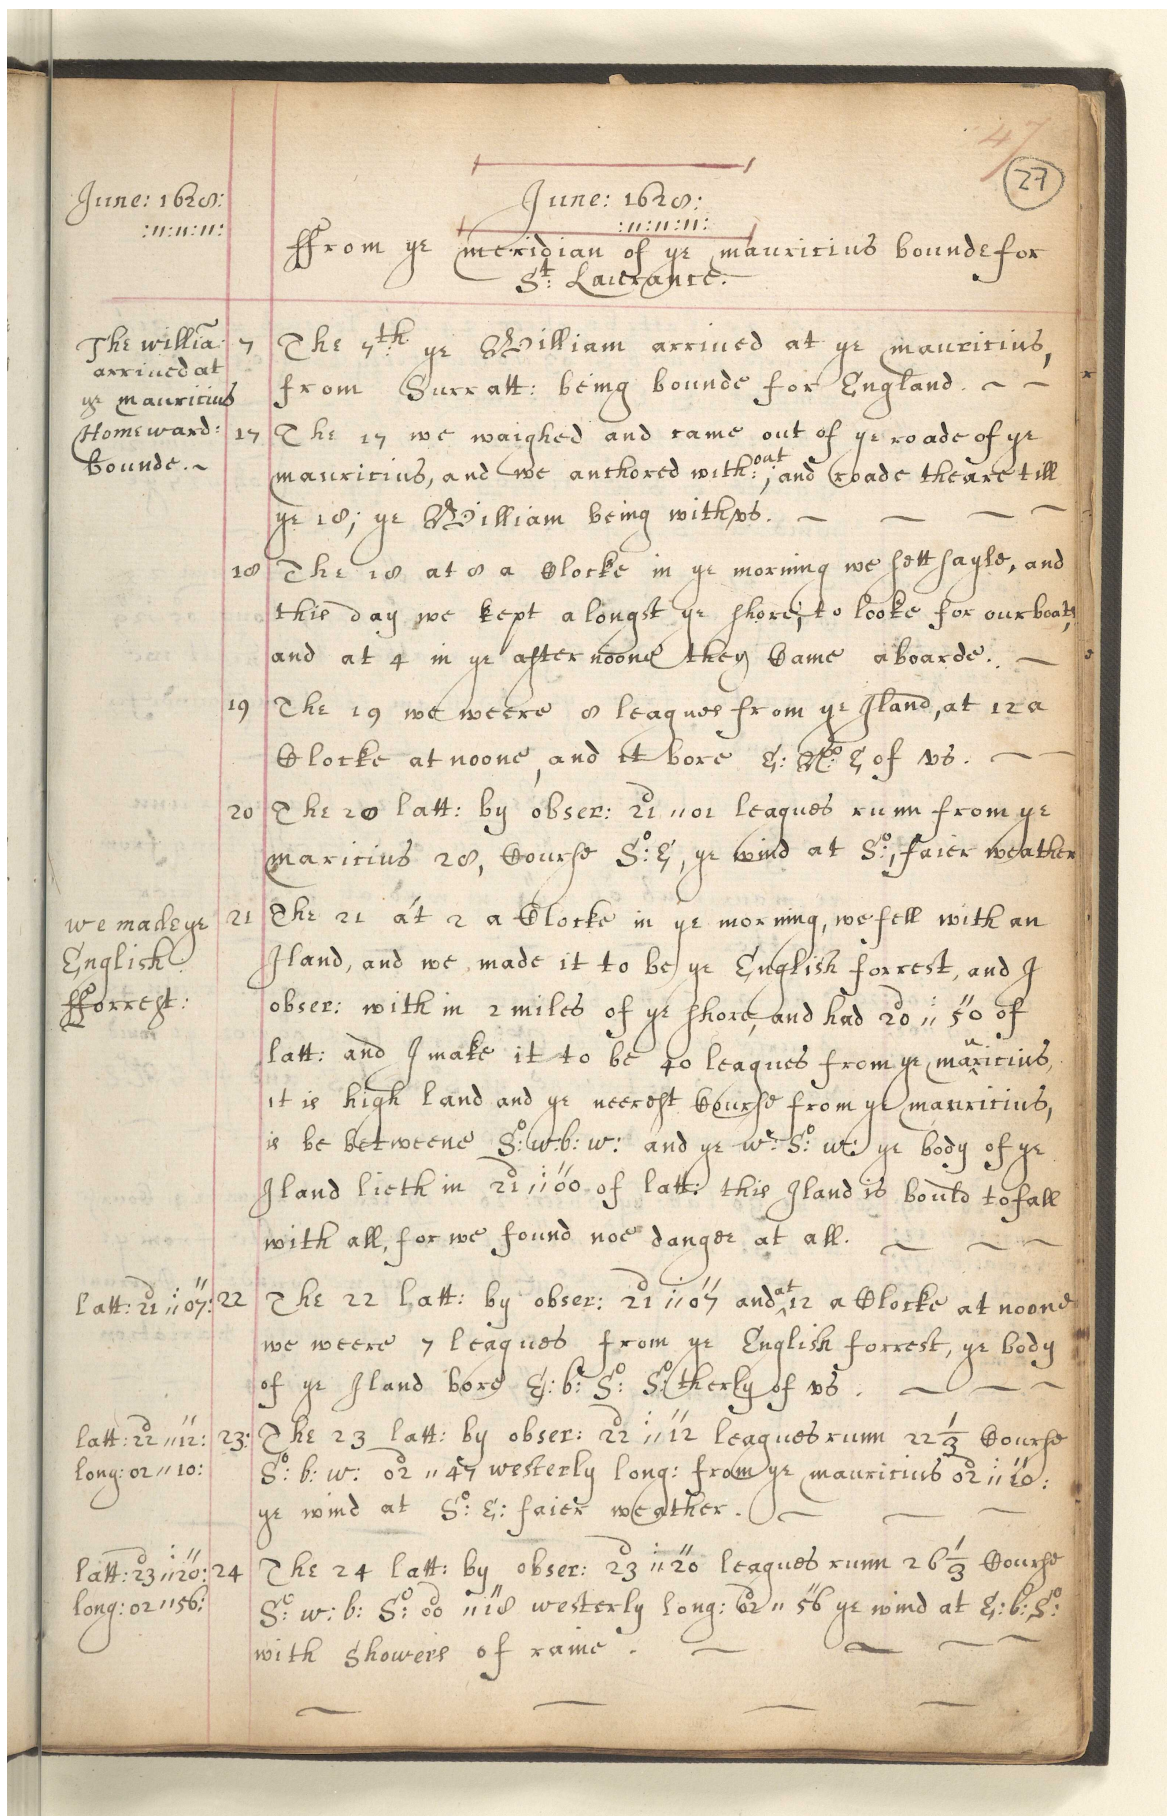 47
27
June: 1628:
:11:11:11:
June: 1628:
:11:11:11:
ffrom ye meridian of ye mauricius bounde for
St: Laurance.
The willia:
arriued at
ye mauricius
Homeward:
bounde.~
7 The 7th: ye William arriued at ye mauricius,
from Surratt: being bounde for England. ~ ~
17 The 17 we waighed and came out of ye roade of ye
mauricius, and we anchored with:out; and roade theare till
ye 18; ye William being with vs. ~ ~ ~ ~
18 The 18 at 8 a Clocke in ye morning we sett sayle, and
this day we kept alongst ye shore, to looke for our boats,
and at 4 in ye after noone they Came aboarde. ~
19 The 19 we weere 8 leagues from ye Iland, at 12 a
Clocke at noone, and it bore E: No: E of vs. ~ ~
20 The 20 latt: by obser: 21 11 01 leagues runn from ye
maricius 28, Course So: E, ye wind at So:, faier weather
we made ye
English
fforrest:
21 The 21 at 2 a Clocke in ye morning, we fell with an
Iland, and we made it to be ye English forrest, and I
obser: with in 2 miles of ye shore, and had 20 11 50 of
latt: and I make it to be 40 leagues from ye mauricius,
it is high land and ye neerest Course from ye mauricius,
is be betweene So: w:b: w: and ye w: So: w: ye body of ye
Iland lieth in 21 11 00 of latt: this Iland is bould to fall
with all, for we found noe danger at all. ~ ~ ~
latt: 21 11 07:
22 The 22 latt: by obser: 21 11 07 and at 12 a Clocke at noone
we weere 7 leagues from ye English forrest, ye body
of ye Iland bore E: b: So: So:therly of vs. ~ ~ ~
latt: 22 11 12:
long: 02 11 10:
23: The 23 latt: by obser: 22 11 12 leagues runn 22 1/3 Course
So: b: w: 02 11 47 westerly long: from ye mauricius 02 11 10:
ye wind at So: E: faier weather. ~ ~ ~
latt: 23 11 20:
long: 02 11 56:
24 The 24 latt: by obser: 23 11 20 leagues runn 26 1/3 Course
So: w: b: So: 00 11 18 westerly long: 02 11 56 ye wind at E: b: So:
with showers of raine. ~ ~ ~ ~